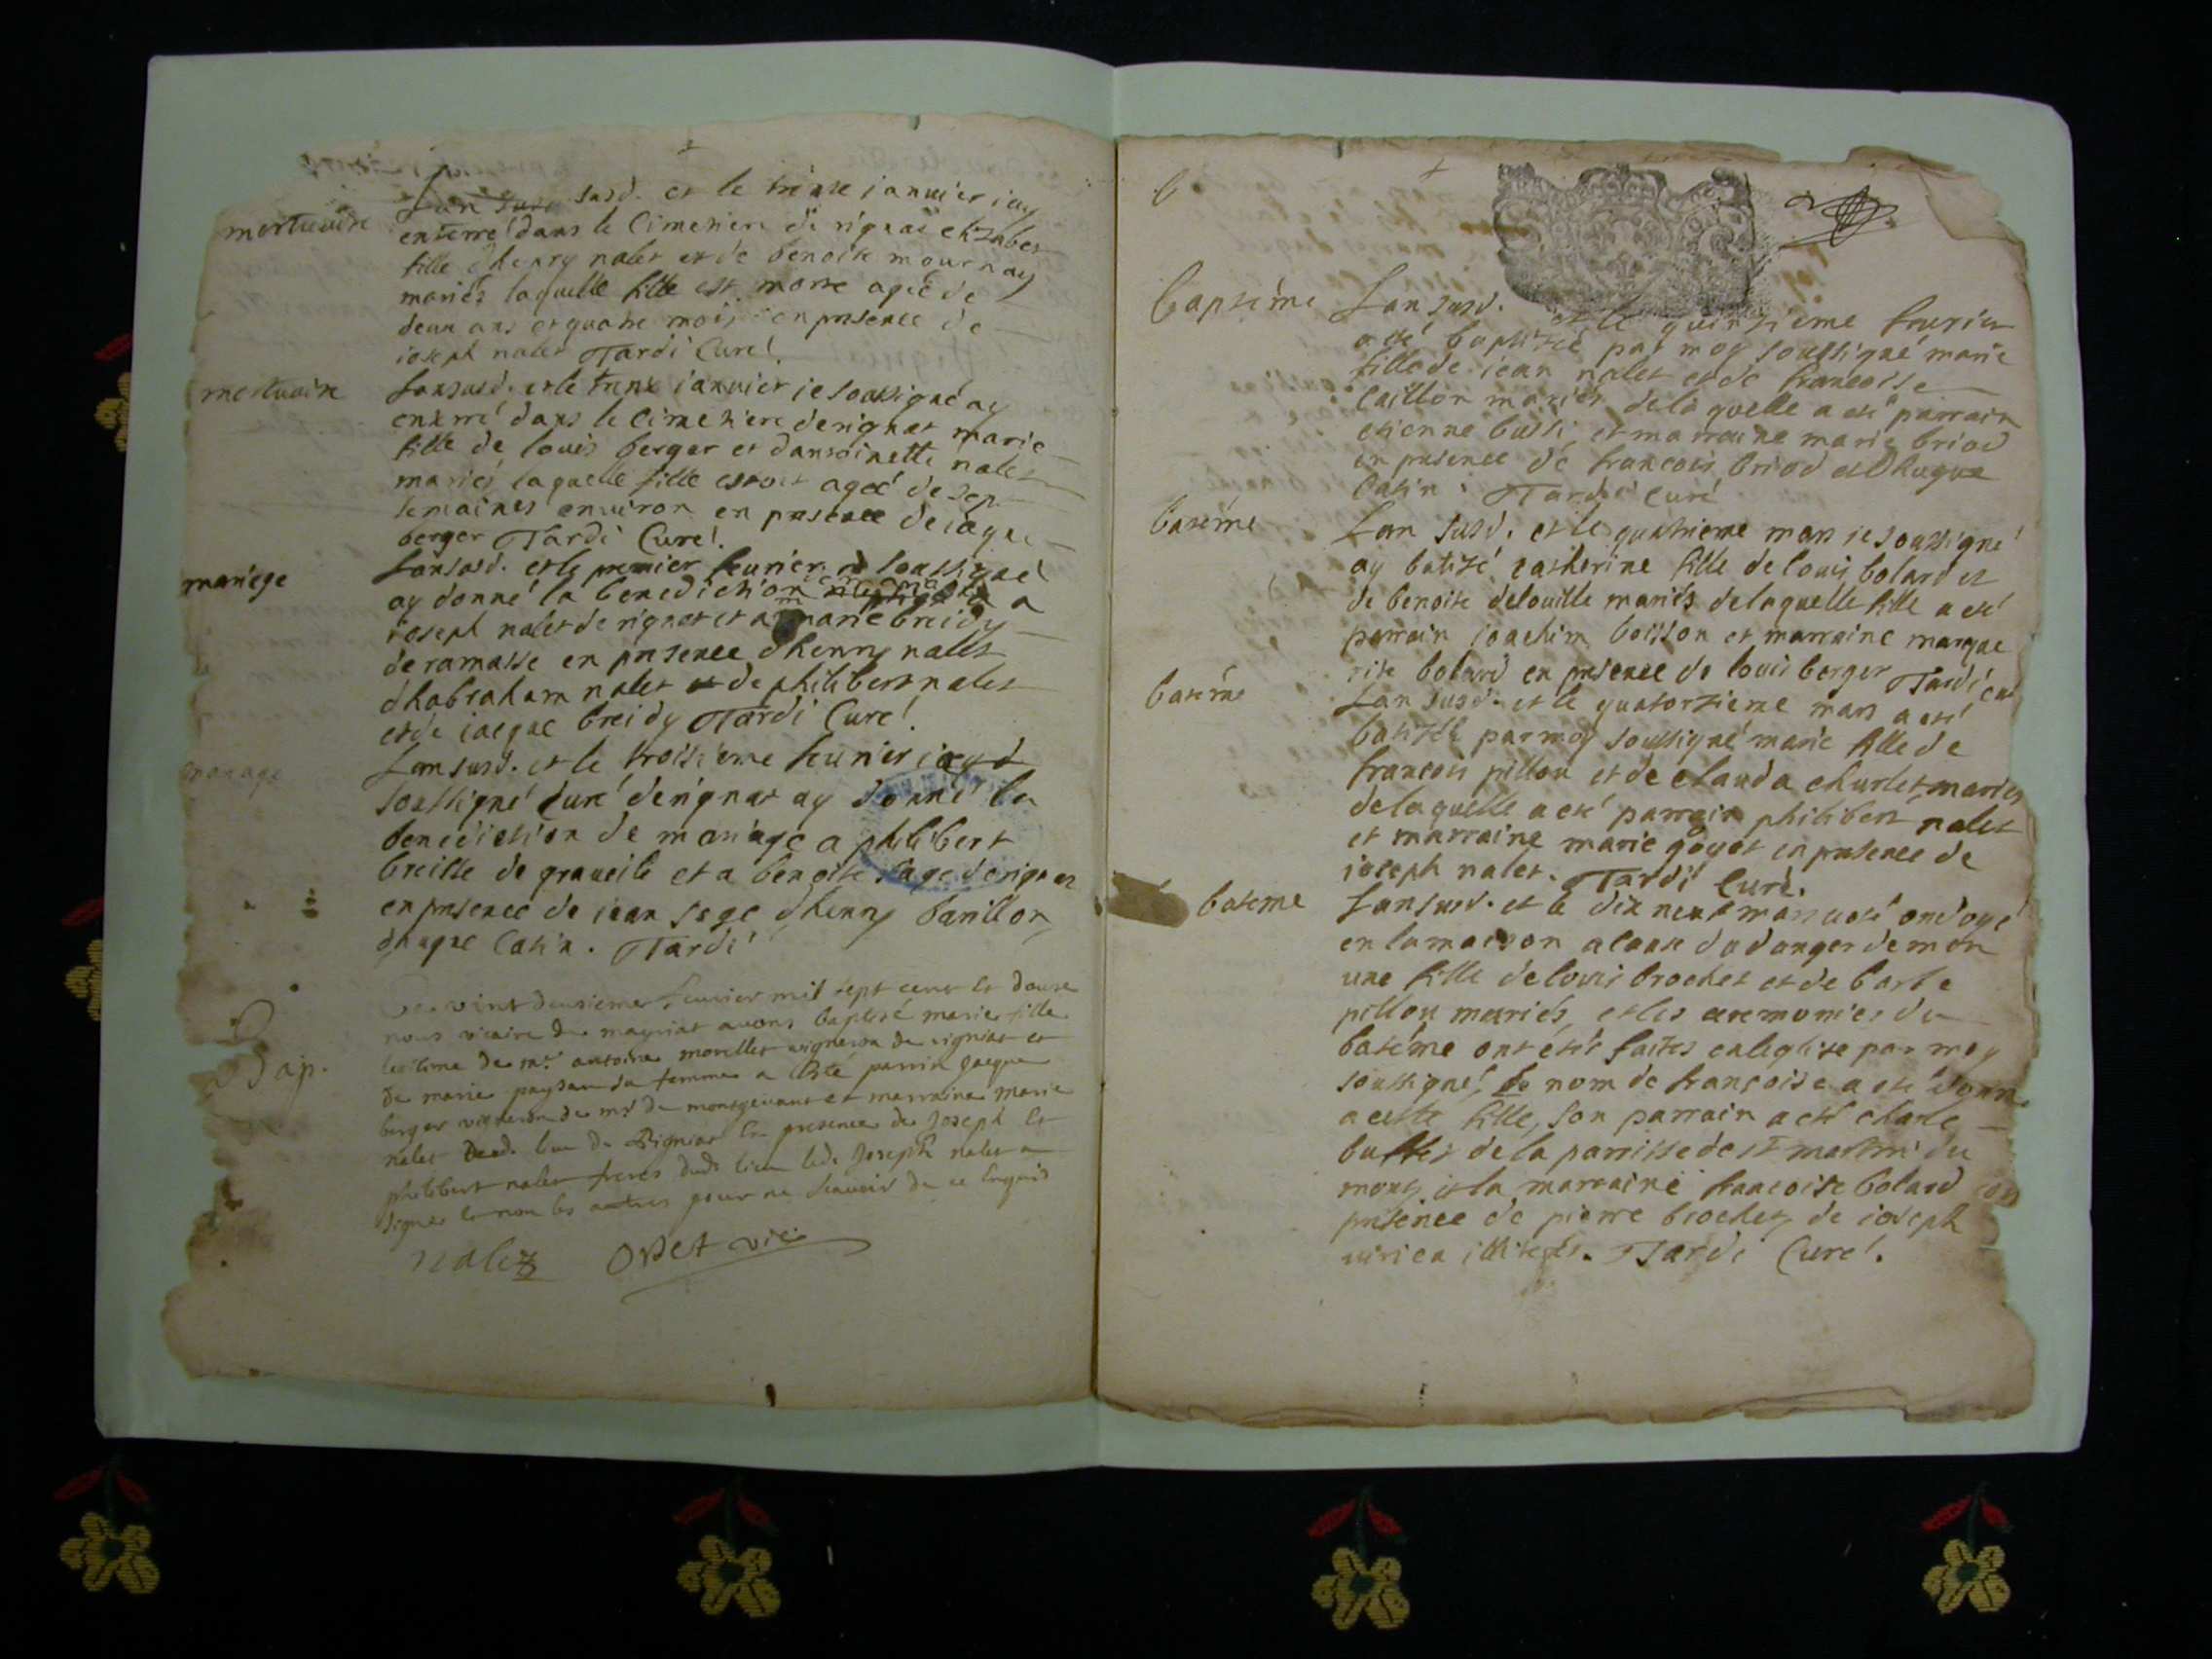 mortuaire
Lan susd. et le treize ianuier iay
enterré dans le Cimetiere de rignat elizabet
fille dhenry nalet et de benoite mournay
mariés laquelle fille est morte agée de
deux ans et quatre mois en presence de
ioseph nalet Tardi Curé.
mortuaire
Lan susd. et le ianuier ie soussigné ay
enterré dans le cimetiere de rignat marie
fille de louis berger et dantoinette nalet
mariés laquelle fille estoit agée de sept
semaines enuiron en presence de iaque
berger Tardi Curé.
mariege
Lan susd. et le premier feurier ie soussigné
ay donné la benediction a
ioseph nalet de rignat et a marie breidy
de ramasse en presence dhenry nalet
dhabraham nalet et de philibert nalet
et de iacque breidy Tardi Curé.
mariage
Lan susd. et le troisieme feurier
soussigné Curé de rignat ay donné la
benediction de mariage a philibert
breille de graueile et a benoite sage de rignat
en presence de iean sege dhenry banillon
dhugue Catin. Tardi
Bap.
Le vint deusieme feurier mil sept cent et douse
nous vicaire de mayriat auons baptisé marie fille
legitime de mr. antoine morellet vigneron de rigniat et
de marie paysan sa femme a esté parrin Jaeque
berger vigneron de mr. de montgeuant et marraine marie
nalet dud. lieu de Rigniat en presence de Joseph et
philibert nalet freres dudi lieu led. Joseph nalet a
signé et non les autres pour ne scauoir de ce enquis
nalet vic
Captéme
Lan susd. et le quinzieme feurier
a esté baptizée par moy soussigné marie
fille de iean nalet et de francoise
Caillon mariés de la quelle a esté parrain
etienne bussi, et marraine marie briod
en presence de francois briod et dhugue
Catin. Tardi curé
batéme
Lan susd. et le quatrieme mars ie soussigné
ay batizé catherine fille de louis bolard et
de benoite delouille mariés de laquelle fille a esté
parrain ioachim boisson et marraine margue
rite bolard en presence de louis berger Tardi curé
batéme
Lan susd. et le quatorzieme mars a esté
batizée par moy soussigné marie fille de
francois pillou et de clauda churlet mariés
de laquelle a esté parrain philibert nalet
et marraine marie goyot en presence de
ioseph nalet. Tardi Curé.
bateme
Lan susd. et le dix neuf mars a esté ondoyé
en la maison a cause du danger de mort
une fille de louis brochet et de barbe
pillou mariés, et les ceremonies du
batéme ont esté faites en leglise par moy
soussigné, le nom de françoise a esté donné
a cette fille, son parrain a esté charle
buffet de la parrisse de st martin du
mont, et la marraine francoise bolard en
presence de pierre brochet, de ioseph
illiterés. Tardi Curé.